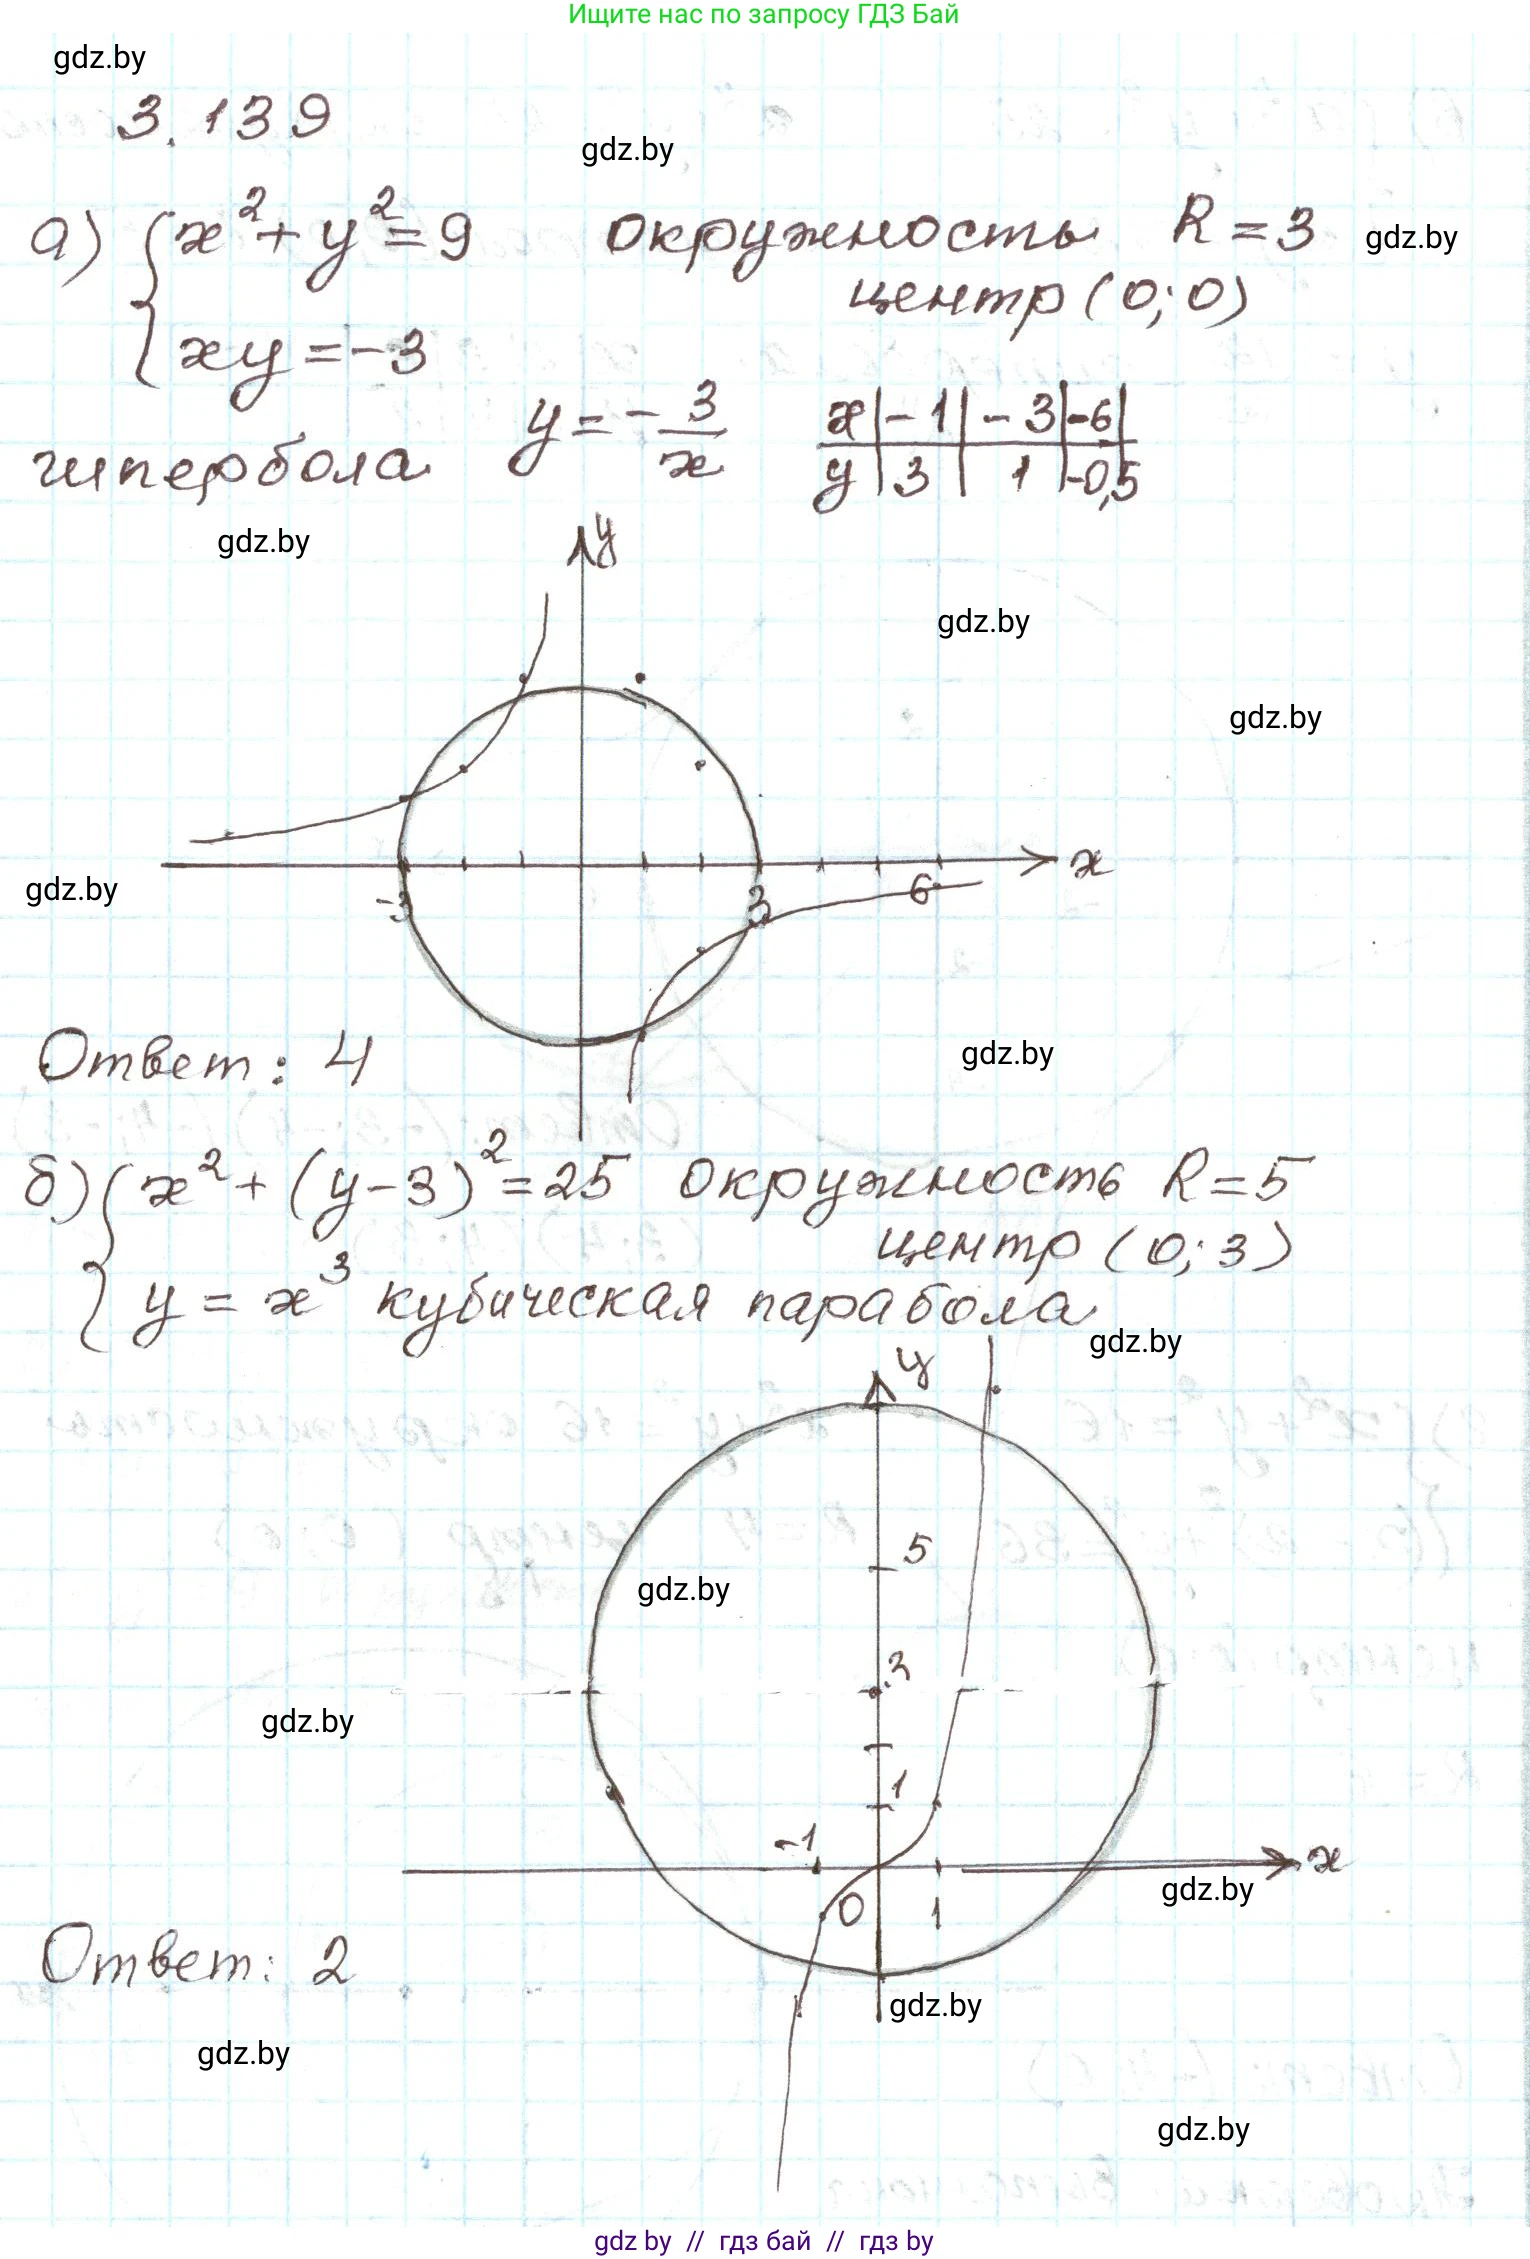 Ищите нас по запросу ГДЗ Бай
gdz.by
3.139
gdz.by
а) { x² + y² = 9 окружность R = 3 gdz.by
центр (0; 0)
xy = -3
гипербола y = - 3/x
x | -1 | -3 | -6 |
y | 3 | 1 | -0,5
gdz.by
y
gdz.by
gdz.by
x
gdz.by
-3 3 6
Ответ: 4
gdz.by
б) { x² + (y-3)² = 25 окружность R = 5
центр (0; 3)
y = x³ кубическая парабола
gdz.by
y
5
gdz.by
3
gdz.by
1
-1
x
gdz.by
0 1
Ответ: 2
gdz.by
gdz.by
gdz.by
gdz by // гдз бай // гдз by